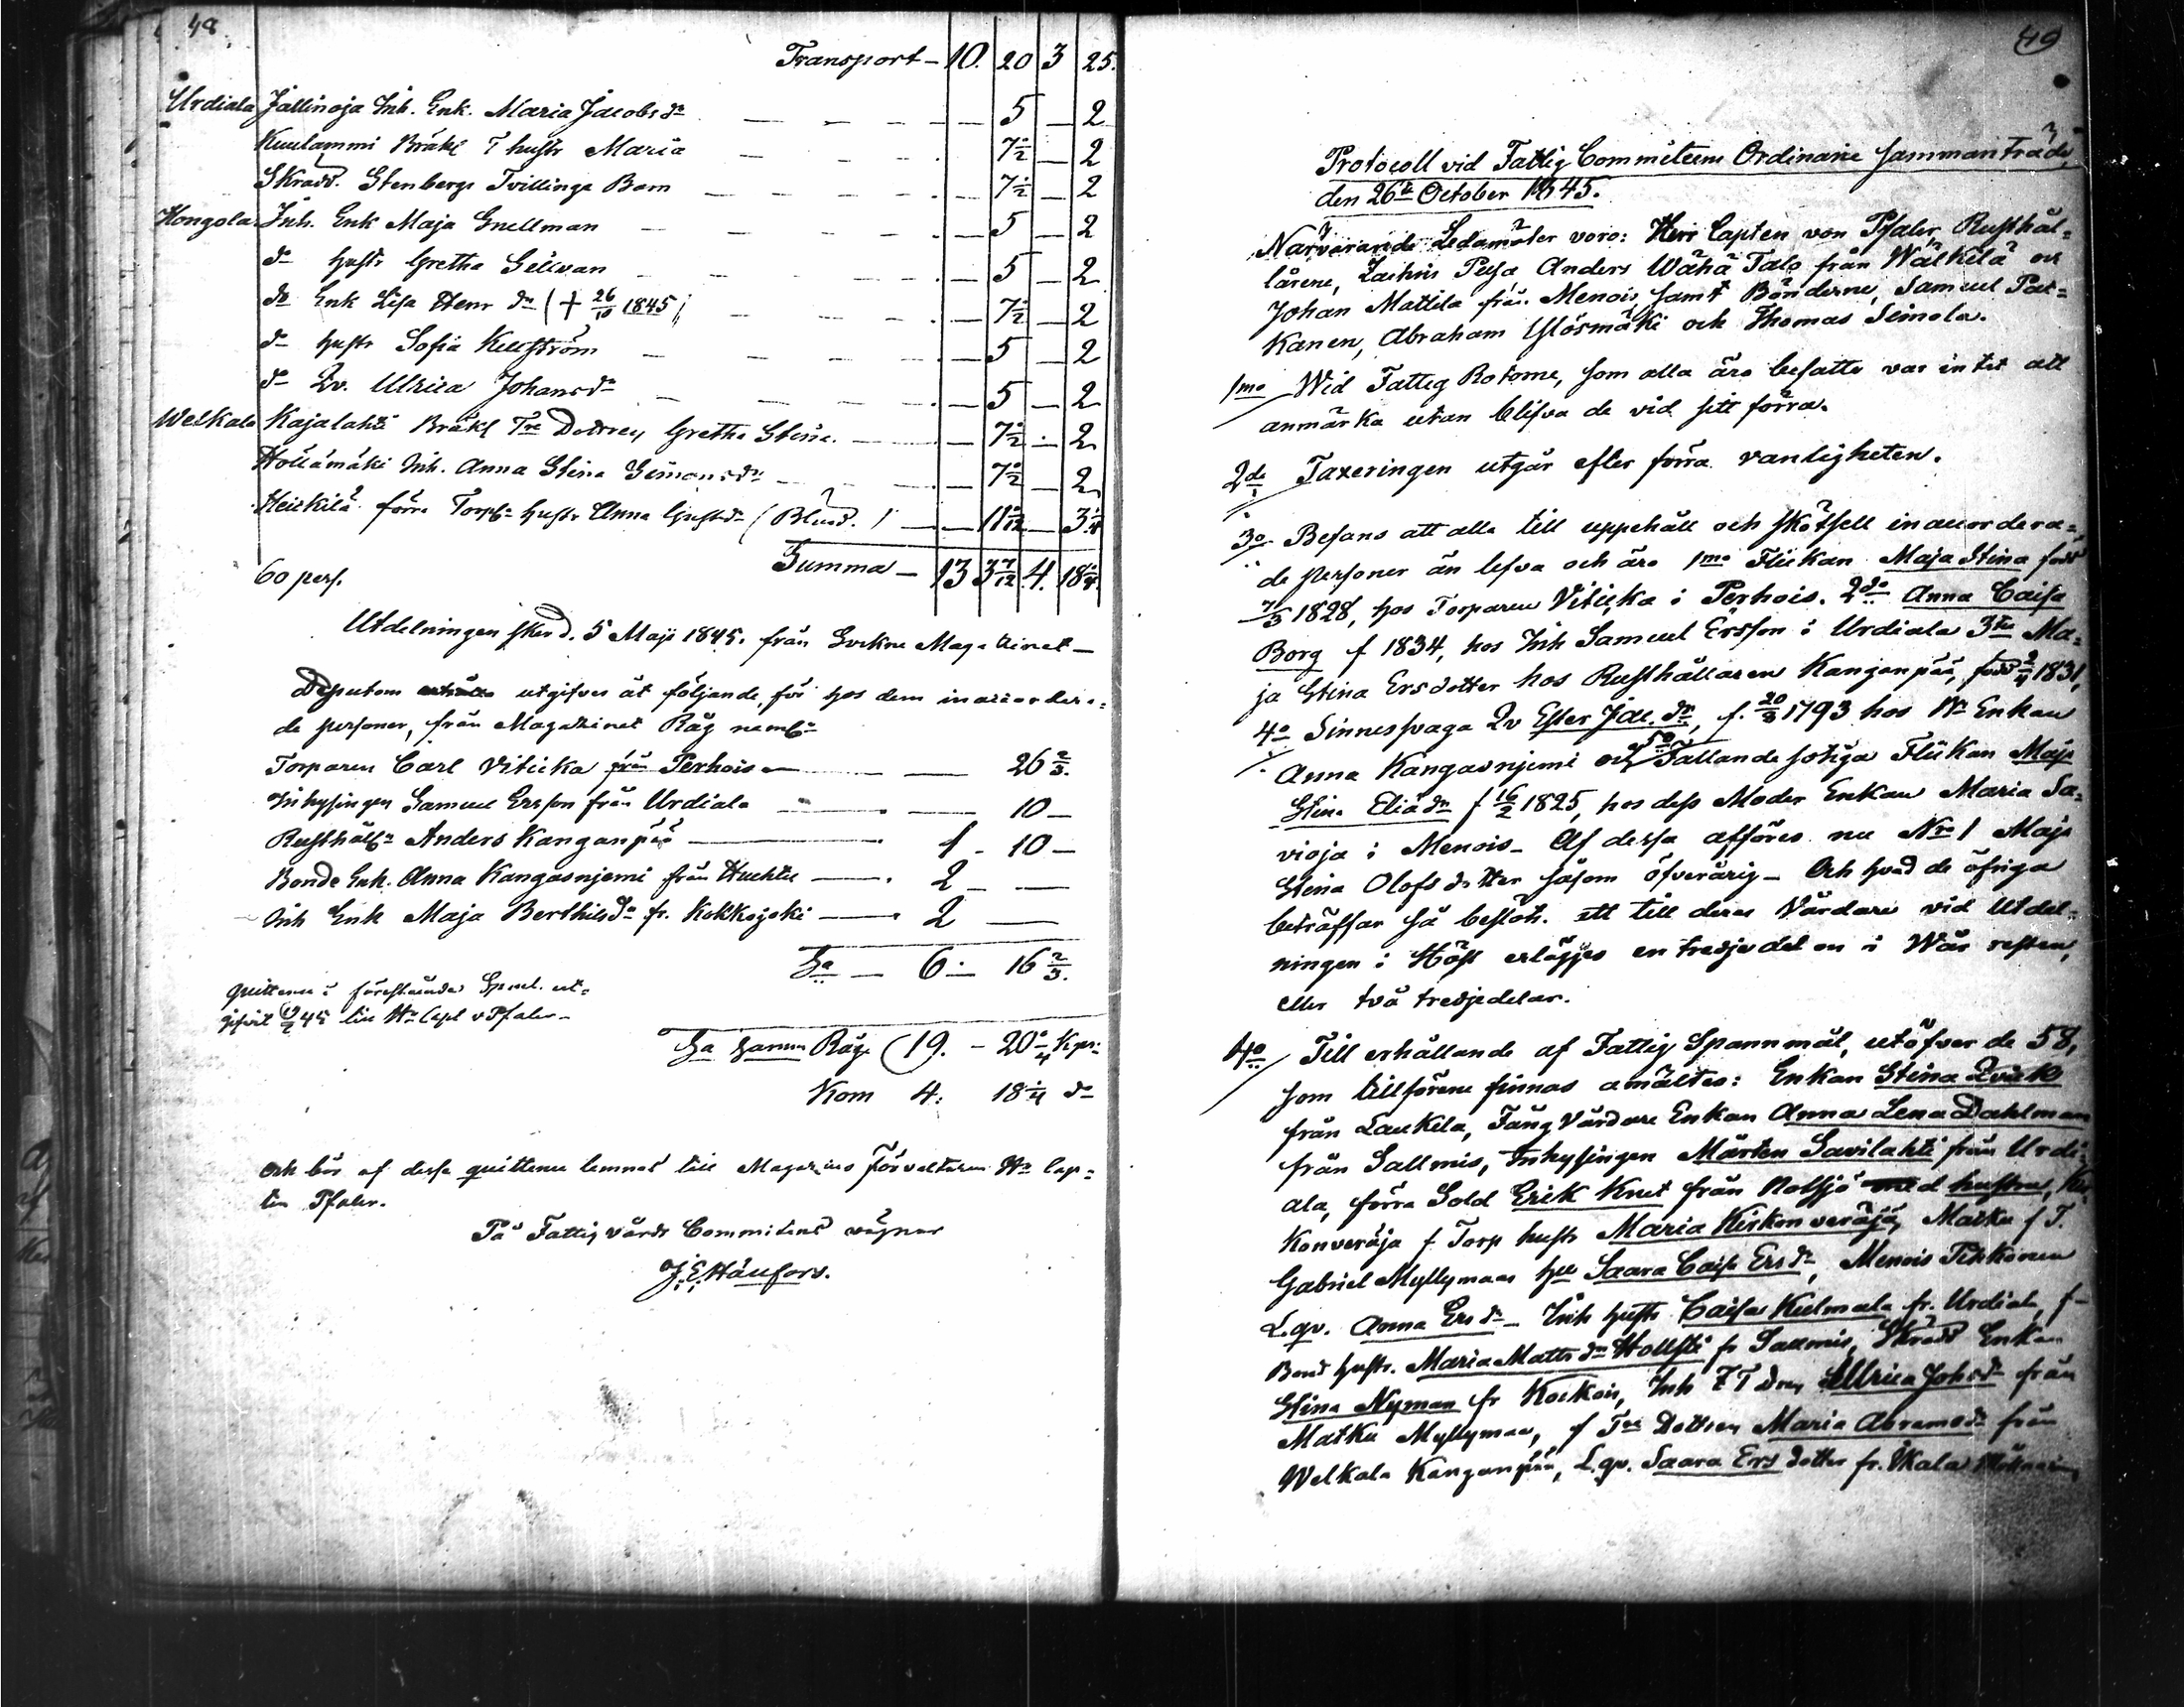 48.
Transport – 10. 20 3 25.
Urdiala Jällinoja Inh. Enk. Maria Jacobsdr — 5 — 2
Kuulammi Bräkl T hustr Maria — 7½ — 2
Skradd. Stenbergs Tvillinge Barn — 7½ — 2
Hongola Inh. Enk Maja Gnellman — 5 — 2
do hustr Gretha — 5 — 2
do Enk Lisa Henr dr († 26/10 1845) — 7½ — 2
do hustr Sofia — 5 — 2
do Qv. Ulrica Johansdr — 5 — 2
Welkala Kajalahti Bräkl Tre Gretha Stina — 7½ — 2
Inh. Anna Stina Simonsdr — 7½ — 2
Heickilä förra Torp. hustr Anna (Blind.) — 11 — 3
60 pers. Summa – 13 3 7/12 4. 18
Utdelningen skedd. 5 Maji 1845. från Sockne Magazinet –
Deputom utgifves åt följande, för hos dem inaccordera=
de personer, från Magazinet Råg neml:
Torparen Carl Viticka från Perhois — 26 2/3.
Inhysingen Samuel Ersson från Urdiala — 10 –
Rusthåll: Anders Kanganpää — 1 - 10 –
Bonde Enk. Anna Kangasnjemi från Huchtis — 2 – —
Inh Enk Maja Berthilsdr fr. Kokkojoki — 2 —
Sa — 6 — 16 2/3.
quittence i förestående Spml. ut=
gifvit 45 till Hr Capt v Pfaler –
Sa Råg 19. – 20 Kpr:
Korn 4: 18 do
och bör af dessa quittence lemnas till Magazins Förvaltaren Hr Cap=
ten Pfaler.
På Fattig vårds Committens vägnar
J. E. Hänfors.
49
Protocoll vid Fattig Committeens Ordinarie sammanträde
den 26te October 1845.
Närvarande Ledamöter voro: Herr Capten von Pfaler, Rusthål=
larene, Pusa, Anders Wähä Talo från Wälkilä och
Johan Mattila från Menois samt Bönderne, Samuel Pac=
kanen, Abraham Ylösmäki och Thomas Simola.
1mo Wid Fattig Rotorne, som alla äro besatte var intet att
anmärka utan blifva de vid sitt förra.
2do Taxeringen utgår efter förra vanligheten.
3o Befans att alla till uppehäll och skötsell inaccordera=
de personer än lefva och äro 1mo Flickan Maja Stina född
1828, hos Torparen Viticka i Perhois. 2do Anna Caisa
Borg f 1834, hos Inh Samuel Ersson i Urdiala 3tio Ma=
ja Stina Ersdotter hos Rusthållaren Kanganpää, född 1831,
4o Sinnessvaga Qv Ester Jac. dr, f. 20/3 1793 hos Br Enkan
Anna Kangasnjemi och 5o Fallande sotiga Flickan Maja
Stina Eliædr f 16/2 1825, hos dess Moder Enkan Maria Sa=
vioja i Menois – Af dessa afföres nu Nro 1 Maja
Stina Olofs dotter såsom öfverårig – Och hvad de öfriga
beträffar så beslöts. att till deras Vårdare vid Utdel=
ningen i Höst erlägges en tredjedel en i Wår resten,
eller två tredjedelar.
4o Till erhållande af Fattig Spannmål, utöfver de 58,
som tillförene finnas amältes: Enkan Stina Qvick
från Laukela, Fång Vårdare Enkan Anna Lena Dahlman
från Sallmis, Inhysingen Mårten Savilahti från Urdi=
ala, förra Sold Erick Knut från Notsjö med hustru,
Konveräjä f Torp hustr Maria Kirkonveräjä, Matku f T.
Gabriel Myllymaas hu Saara Caisa Ersdr, Menois Tikkanen
L. qv. Anna Ersdr – Inh hustr Caisa Kulmala fr. Urdiala, f –
Bond hustr. Maria Matts dr Hollsti fr Sallmis, Skradd Enkan
Stina Nyman fr Kockois, Inh Ulrica Johsdr från
Matku Myllymaa, f Tre Maria Abramsdr från
Welkala Kanganpää, L. qv. Saara Ers dotter fr.